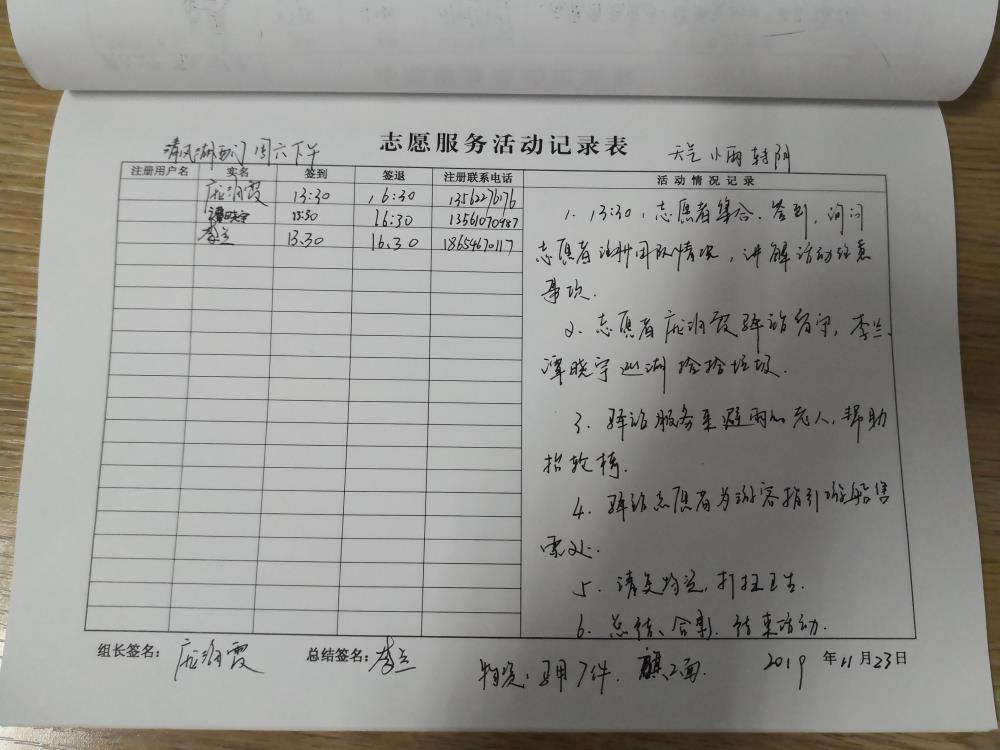 志愿服务活动记录表
清风湖西门 周六下午
天气 小雨转阴
注册用户名 实名 签到 签退 注册联系电话 活动情况记录
庞润霞 13:30 16:30
谭晓宁 13:30 16:30 13561070487
李兰 13.30 16.30 18654670117
1. 13:30，志愿者集合、签到，询问
志愿者注册团队情况，讲解活动注意
事项.
2. 志愿者庞润霞驿站留守，李兰、
谭晓宁巡湖捡拾垃圾.
3. 驿站服务来避雨的老人，帮助
4. 驿站志愿者为游客指引游船售
票处.
5. 清点物资，打扫卫生.
6. 总结、合影、结束活动.
组长签名： 庞润霞 总结签名： 李兰
物资：马甲7件. 旗2面.
2019 年 11 月 23 日